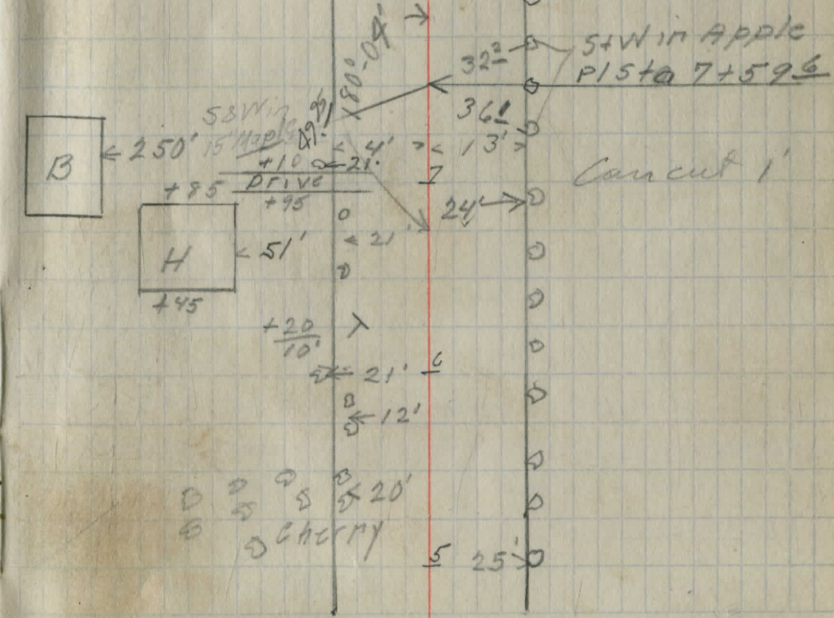 80°-04'
32² S+W in Apple
PI Sta 7+59⁶
36¹
S&W in
15" Maple 49.8'
B 250' 4' 13'
+10 21'
7 Can cut 1'
+85 Drive
+95 24'
21'
H 51'
+45
+20
10'
21' 6
12'
20'
Cherry
5 25'